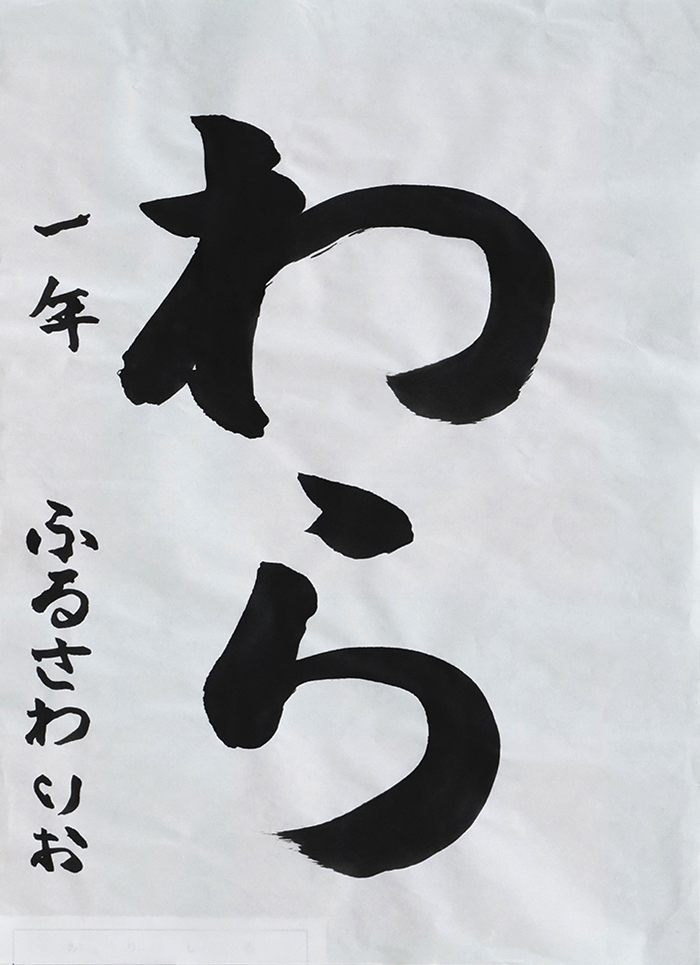 わら
一年 ふるさわりお